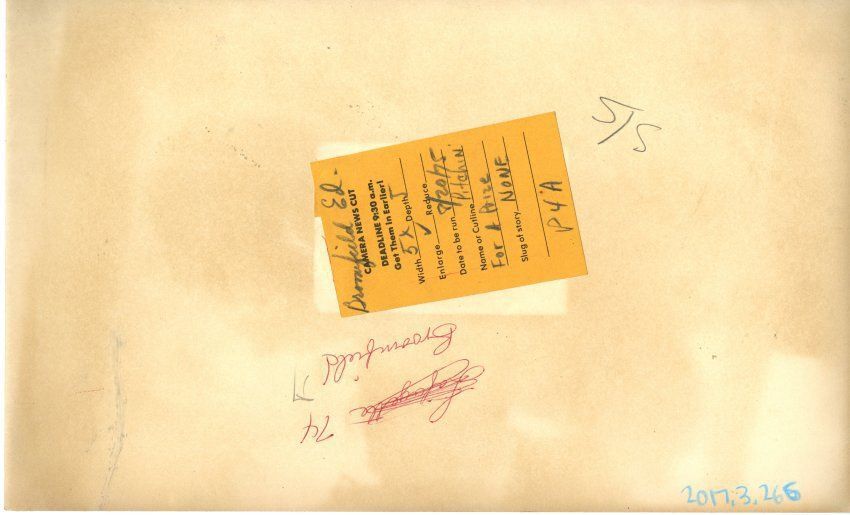 Broomfield Ed.
CAMERA NEWS CUT
DEADLINE 9:30 a.m.
Get Them in Earlier!
Width 5x Depth 5
Enlarge ✓ Reduce
Date to be run 8/20/75
Name or Cutline Pitchin'
For A Prize
Slug of story NONE
P4A
S/S
Broomfield
Lafayette
74
2017.3.266